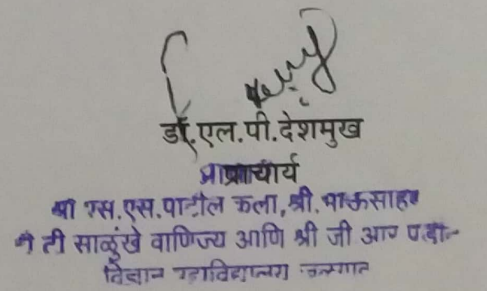 डॉ.एल.पी.देशमुख
प्राचार्य
श्री एस.एस.पाटील कला, श्री.भाऊसाहेब
टी साळुंखे वाणिज्य आणि श्री जी आर पंडीत
विज्ञान महाविद्यालय जळगाव